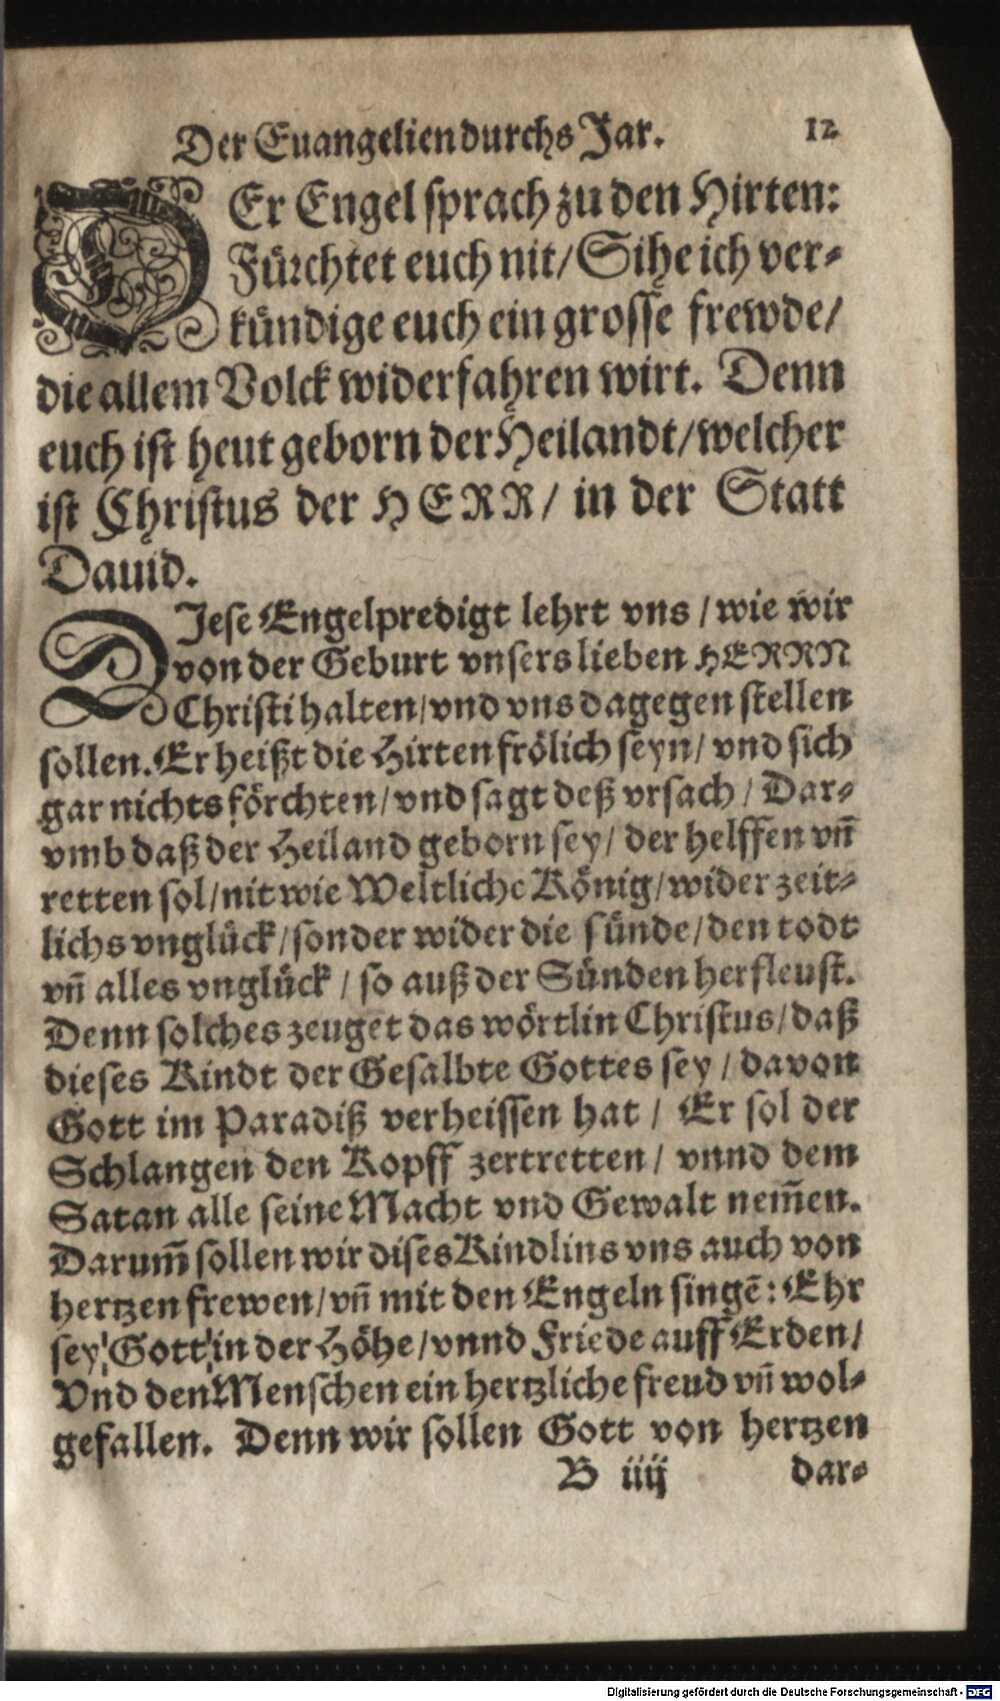 Der Euangelien durchs Jar. 12
DEr Engel sprach zu den Hirten:
Fürchtet euch nit/ Sihe ich ver-
kündige euch ein grosse frewde/
die allem Volck widerfahren wirt. Denn
euch ist heut geborn der Heilandt/ welcher
ist Christus der HERR/ in der Statt
Dauid.
DIese Engelpredigt lehrt vns / wie wir
von der Geburt vnsers lieben HERRN
Christi halten/ vnd vns dagegen stellen
sollen. Er heißt die Hirten frölich seyn/ vnd sich
gar nichts förchten/ vnd sagt deß vrsach / Dar-
vmb daß der Heiland geborn sey/ der helffen vn̄
retten sol/ nit wie Weltliche König/ wider zeit-
lichs vnglück/ sonder wider die sünde/ den todt
vn̄ alles vnglück / so auß der Sünden herfleust.
Denn solches zeuget das wörtlin Christus/ daß
dieses Kindt der Gesalbte Gottes sey / davon
Gott im Paradiß verheissen hat / Er sol der
Schlangen den Kopff zertretten/ vnnd dem
Satan alle seine Macht vnd Gewalt nem̄en.
Darum̄ sollen wir dises Kindlins vns auch von
hertzen frewen/ vn̄ mit den Engeln singē: Ehr
sey Gott in der Höhe/ vnnd Friede auff Erden/
Vnd den Menschen ein hertzliche freud vn̄ wol-
gefallen. Denn wir sollen Gott von hertzen
B iiij dar-
Digitalisierung gefördert durch die Deutsche Forschungsgemeinschaft - DFG